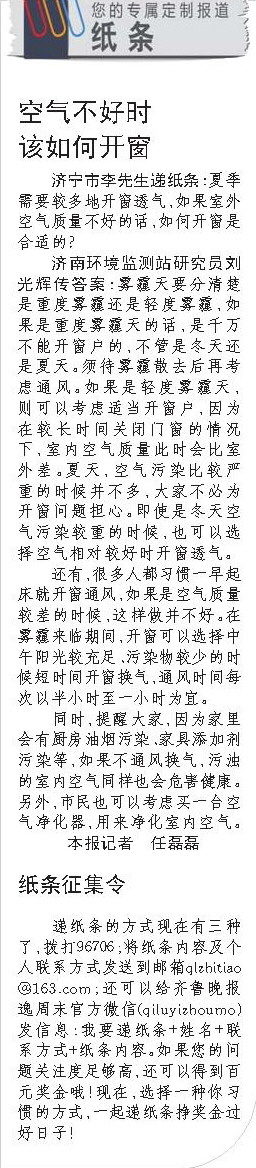 您的专属定制报道
纸条
空气不好时
该如何开窗
济宁市李先生递纸条:夏季
需要较多地开窗透气,如果室外
空气质量不好的话,如何开窗是
合适的?
济南环境监测站研究员刘
光辉传答案:雾霾天要分清楚
是重度雾霾还是轻度雾霾,如
果是重度雾霾天的话,是千万
不能开窗户的,不管是冬天还
是夏天。须待雾霾散去后再考
虑通风。如果是轻度雾霾天,
则可以考虑适当开窗户,因为
在较长时间关闭门窗的情况
下,室内空气质量此时会比室
外差。夏天,空气污染比较严
重的时候并不多,大家不必为
开窗问题担心。即使是冬天空
气污染较重的时候,也可以选
择空气相对较好时开窗透气。
还有,很多人都习惯一早起
床就开窗通风,如果是空气质量
较差的时候,这样做并不好。在
雾霾来临期间,开窗可以选择中
午阳光较充足、污染物较少的时
候短时间开窗换气,通风时间每
次以半小时至一小时为宜。
同时,提醒大家,因为家里
会有厨房油烟污染、家具添加剂
污染等,如果不通风换气,污浊
的室内空气同样也会危害健康。
另外,市民也可以考虑买一台空
气净化器,用来净化室内空气。
本报记者 任磊磊
纸条征集令
递纸条的方式现在有三种
了,拨打96706;将纸条内容及个
人联系方式发送到邮箱qlzhitiao
@163.com;还可以给齐鲁晚报
逸周末官方微信(qiluyizhoumo)
发信息:我要递纸条+姓名+联
系方式+纸条内容。如果您的问
题关注度足够高,还可以得到百
元奖金哦!现在,选择一种你习
惯的方式,一起递纸条挣奖金过
好日子!